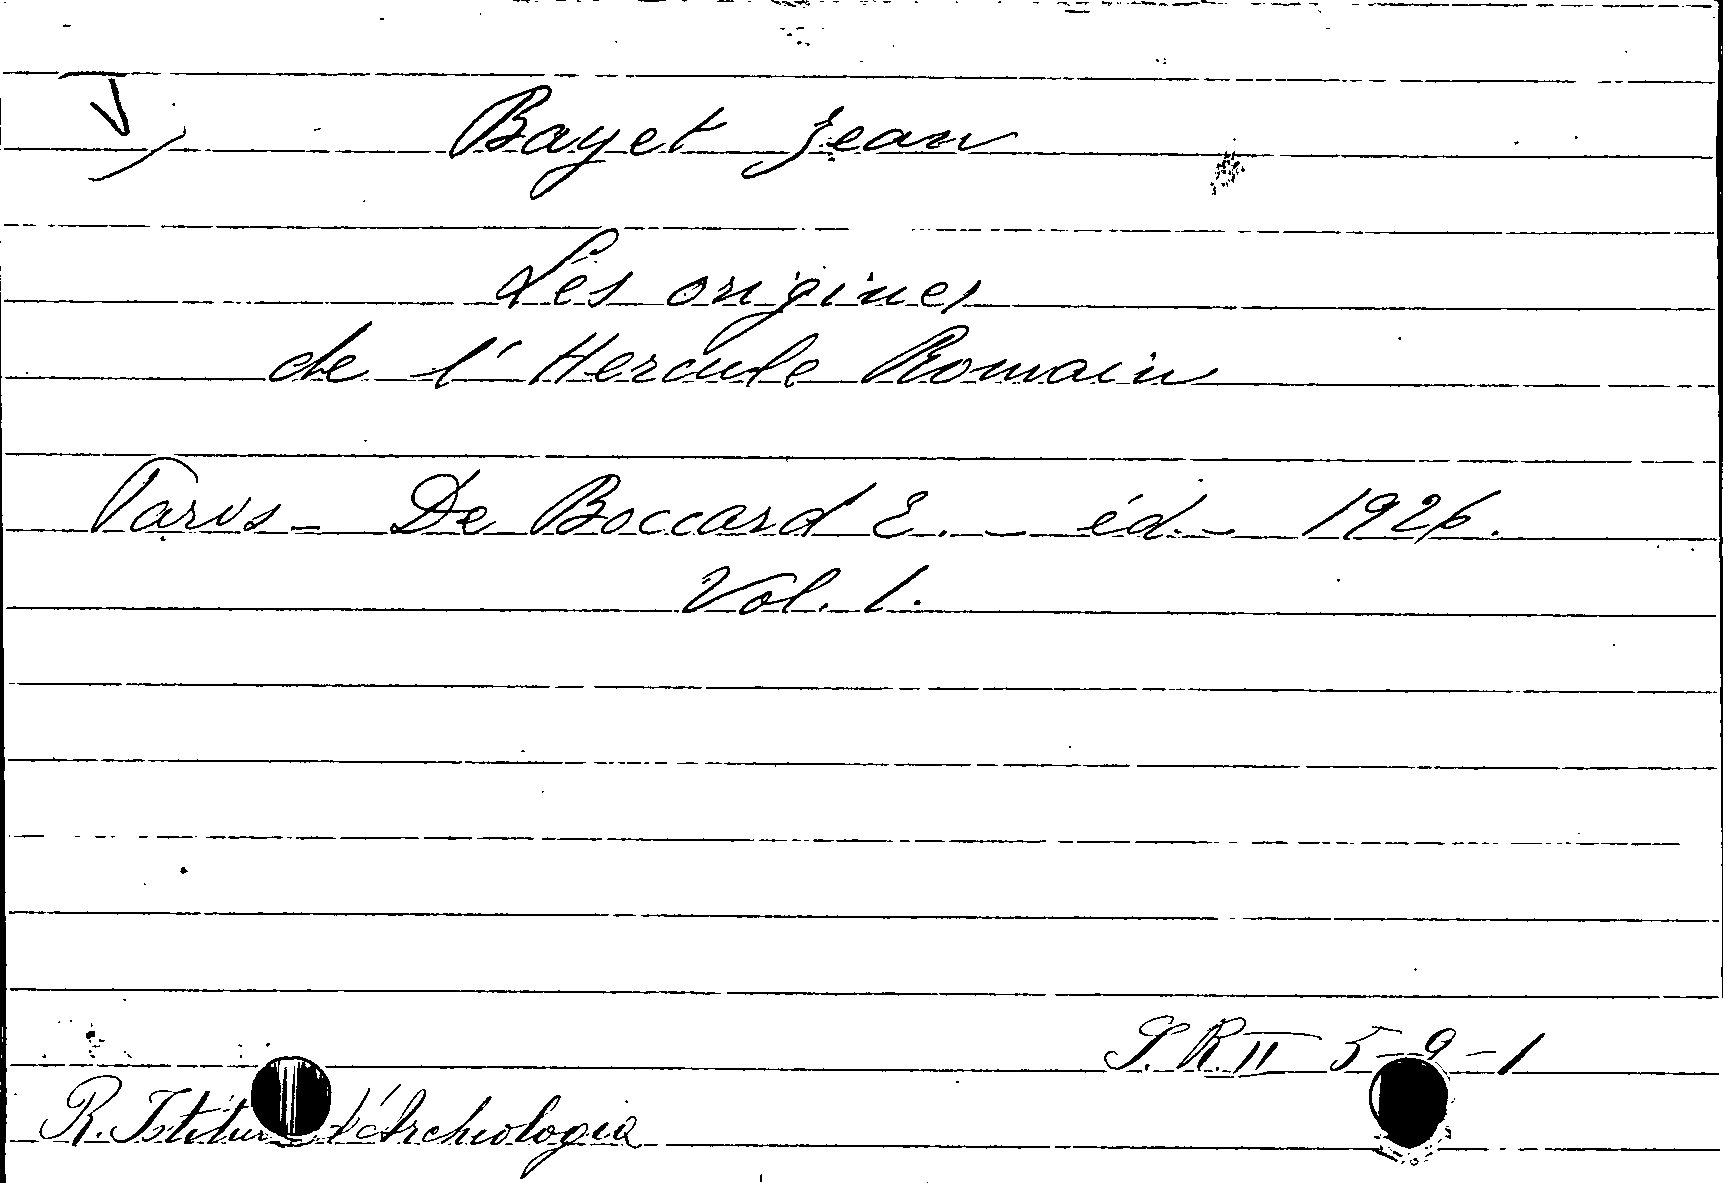 Bayet Jean
Les origines
de l'Hercule Romain
Paris - De Boccard E. - éd. - 1926.
Vol. 1.
S. R. II 5-9-1
R. Istituto d'Archeologia